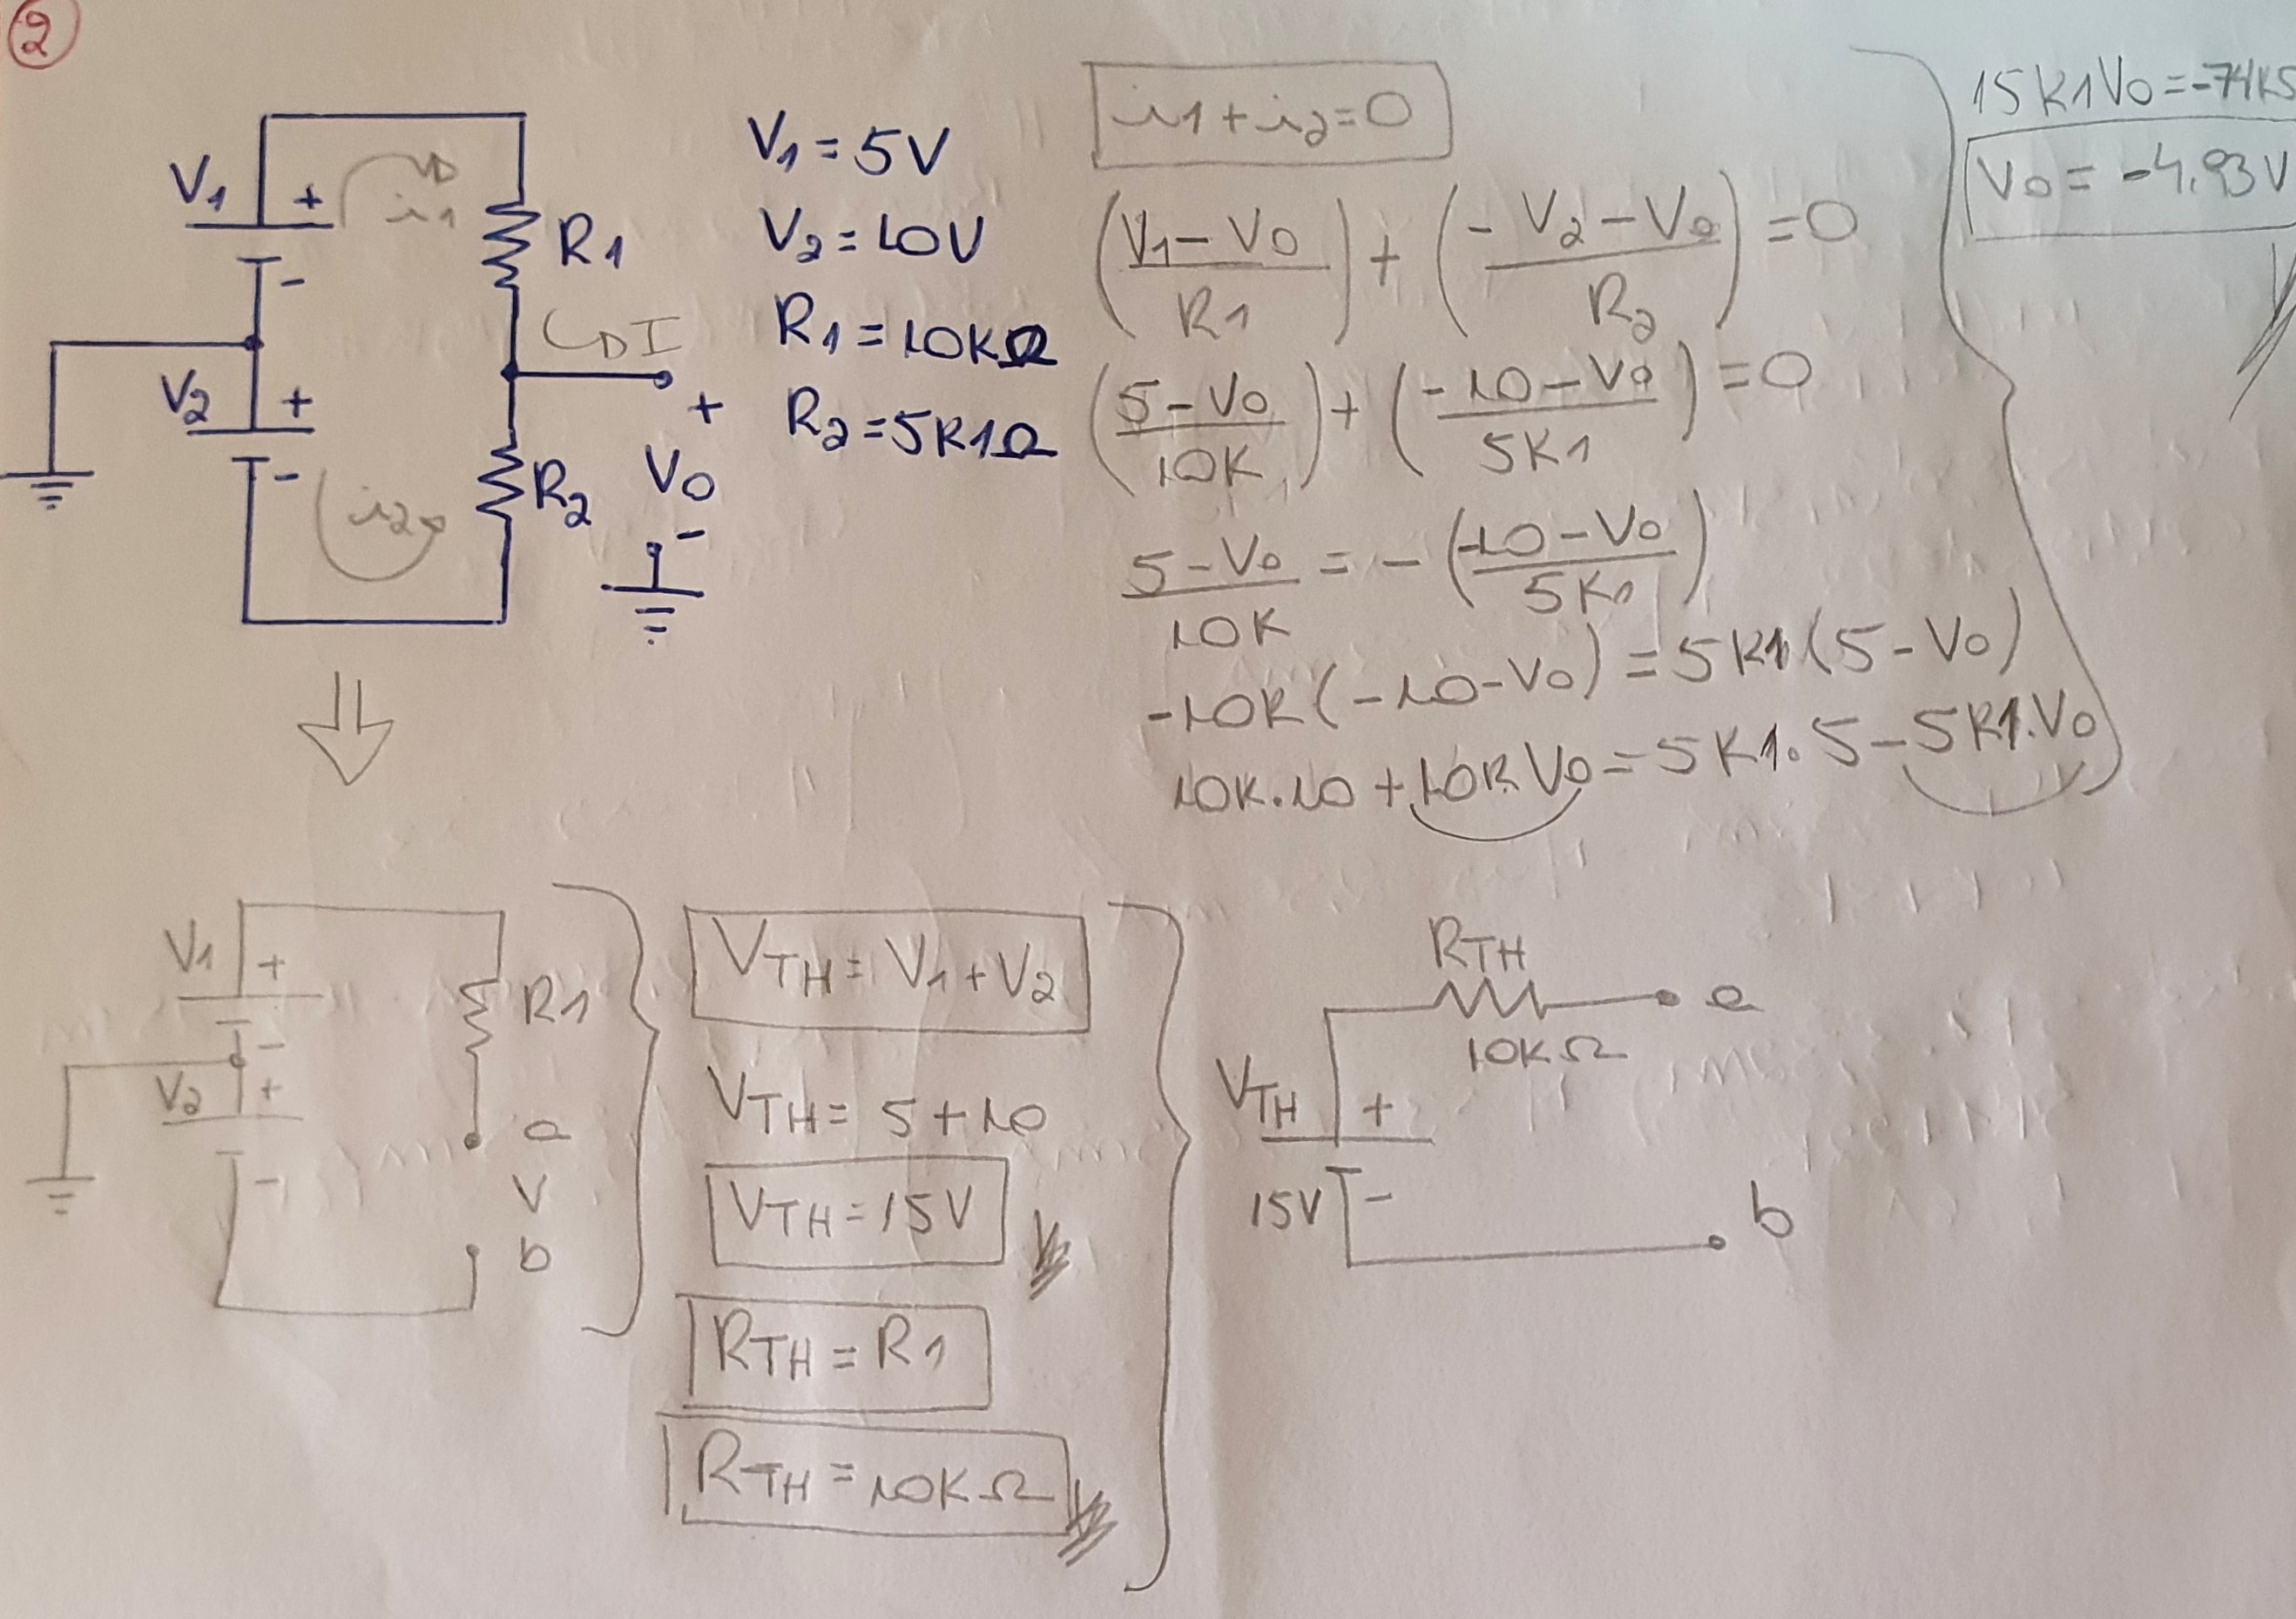 2
V1
+
i1
-
R1
I
V2
+
-
i2
R2
+
V0
-
V1 = 5V
V2 = 10V
R1 = 10KΩ
R2 = 5K1Ω
i1 + i2 = 0
(V1 - V0 / R1) + (- V2 - V0 / R2) = 0
(5 - V0 / 10K) + (-10 - V0 / 5K1) = 0
5 - V0 / 10K = - (-10 - V0 / 5K1)
-10K(-10 - V0) = 5K1(5 - V0)
10K.10 + 10K V0 = 5K1.5 - 5K1.V0
15K1V0 = -74K5
V0 = -4.93V
V1
+
R1
-
V2
+
a
V
-
b
VTH = V1 + V2
VTH = 5 + 10
VTH = 15V
RTH = R1
RTH = 10KΩ
RTH
a
10KΩ
VTH
+
15V
-
b